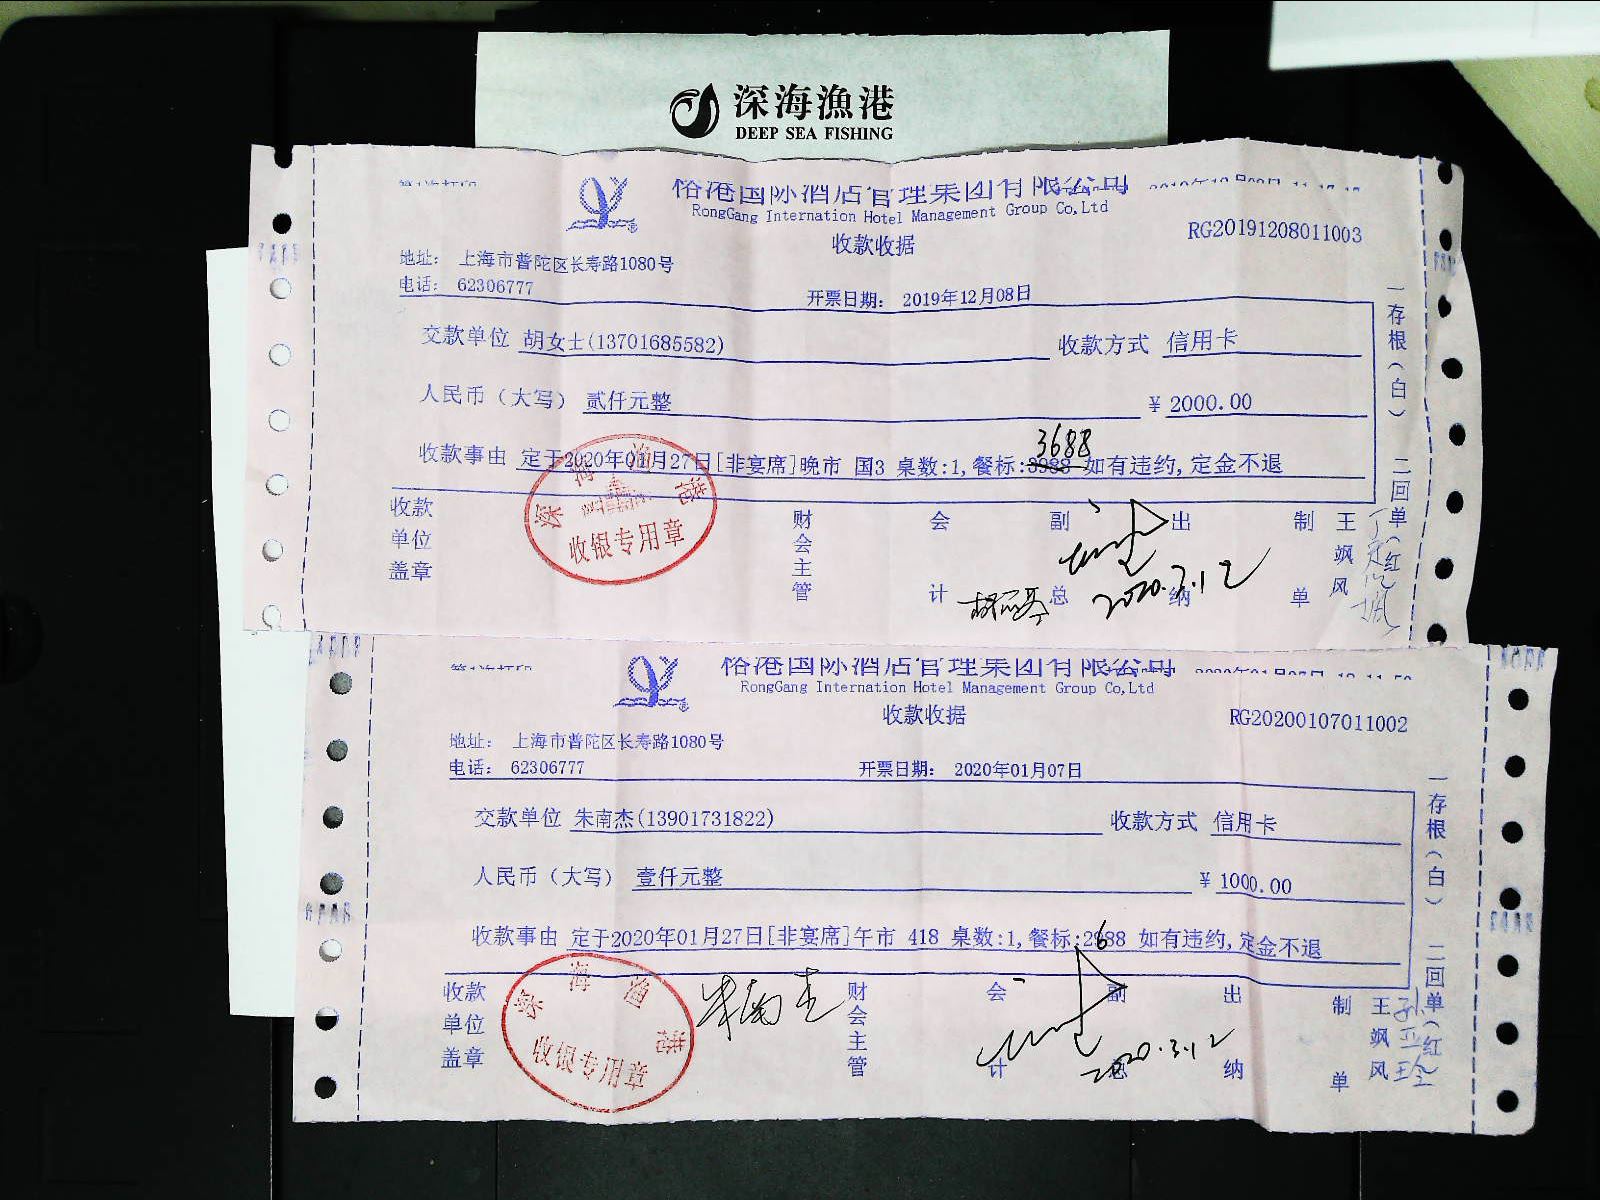 深海漁港
DEEP SEA FISHING
裕港国际酒店管理集团有限公司
RongGang Internation Hotel Management Group Co,Ltd
收款收据
RG20191208011003
地址： 上海市普陀区长寿路1080号
电话： 62306777
开票日期： 2019年12月08日
交款单位 胡女士(13701685582) 收款方式 信用卡
人民币（大写） 贰仟元整 ¥ 2000.00
3688
收款事由 定于2020年01月27日[非宴席]晚市 国3 桌数:1,餐标:3988 如有违约,定金不退
收款单位盖章 财会主管 会计 副总 出纳 制单 王飒风
一存根（白） 二回单（红）
深海渔港
收银专用章
2020.3.12
裕港国际酒店管理集团有限公司
RongGang Internation Hotel Management Group Co,Ltd
收款收据
RG20200107011002
地址： 上海市普陀区长寿路1080号
电话： 62306777
开票日期： 2020年01月07日
交款单位 朱南杰(13901731822) 收款方式 信用卡
人民币（大写） 壹仟元整 ¥ 1000.00
6
收款事由 定于2020年01月27日[非宴席]午市 418 桌数:1,餐标:2988 如有违约,定金不退
收款单位盖章 财会主管 会计 副总 出纳 制单 王飒风
一存根（白） 二回单（红）
深海渔港
收银专用章
朱南杰
2020.3.12